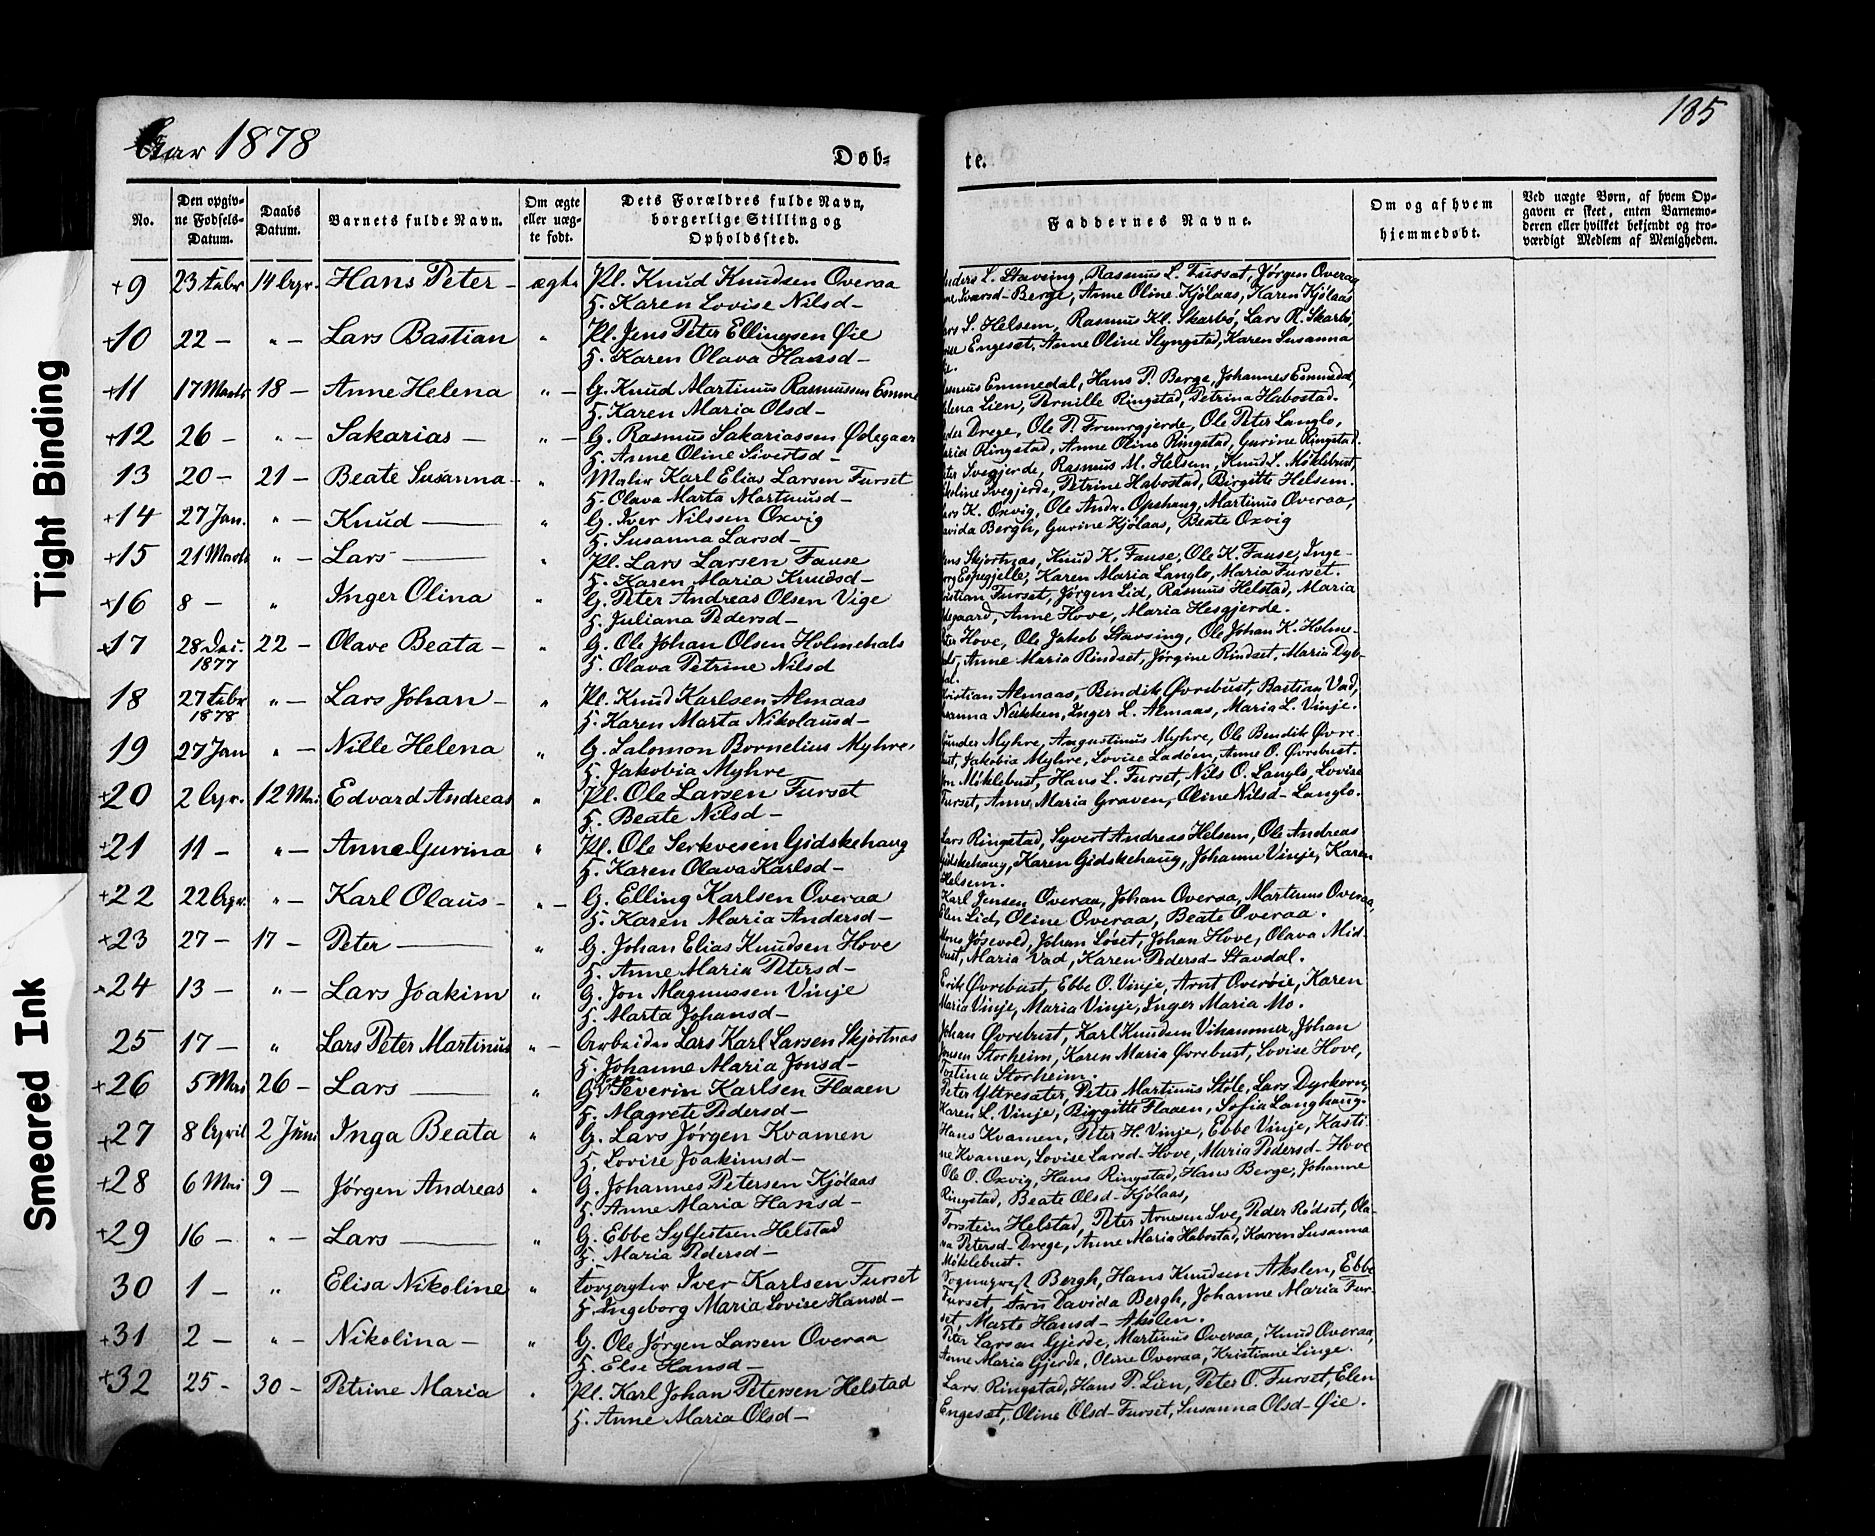 Tight Binding
Smeared Ink
Aar 1878
Døb=
te.
185
No.
Den opgiv-
ne Fødsels-
Datum.
Daabs
Datum.
Barnets fulde Navn.
Om ægte
eller uæg-
te født.
Dets Forældres fulde Navn,
borgerlige Stilling og
Opholdssted.
Faddernes Navne.
Om og af hvem
hjemmedøbt.
Ved uægte Børn, af hvem Op-
gaven er skeet, enten Barnemo-
deren eller hvilket bekjendt og tro-
værdigt Medlem af Menigheden.
+9 23 Febr 14 Apr. Hans Peter - ægte Pl. Knud Knudsen Overaa
H. Karen Lovise Nilsd-
L. Stavsing, Rasmus L. Furset, Jørgen Overaa
Ivarsd- Berge, Anne Oline Kjølaas, Karen Kjølaas
+10 22 - " - Lars Bastian " Pl. Jens Peter Ellingsen Øie
H. Karen Olava Hansd-
S. Helsem, Rasmus Kl. Skarbø, Lars R. Skarbø,
Engeset, Anne Oline Slyngstad, Karen Susanna
+11 17 Marts 18 - Anne Helena " - G. Knud Martinus Rasmussen
H. Karen Maria Olsd-
Emmedal, Hans P. Berge, Johannes Emmedal,
Lien, Pernille Ringstad, Petrina Habostad.
+12 26 - " - Sakarias - " - G. Rasmus Sakariassen Ødegaar
H. Anne Oline Sivertsd-
Drege, Ole P. Ole Peter Langlo,
Ringstad, Anne Oline Ringstad, Gurine Ringstad.
13 20 - 21 - Beate Susanna - " Maler Karl Elias Larsen Furset
H. Olava Marta Martinusd-
Svegjerde, Rasmus M. Helsem, Knud L. Møklebust,
Svegjerde, Petrine Habostad, Birgitte Helsem.
+14 27 Jan. " - Knud - " G. Iver Nilssen Oxvig
H. Susanna Larsd-
K. Oxvig, Ole Andr. Opshaug, Martinus Overaa,
Bergh, Gurine Kjølaas, Beate Oxvig
+15 21 Marts " - Lars - " Pl. Lars Larsen Fause
H. Karen Maria Knudsd-
Skjortnas, Knud K. Fause, Ole K. Fause, Inge-
Espegjelle, Karen Maria Langlo, Maria Furset.
+16 8 - " Inger Olina " G. Peter Andreas Olsen Vige
H. Juliana Pedersd-
Furset, Jørgen Lid, Rasmus Helstad, Maria
Anne Hove, Maria Hesgjerde.
+17 28 Dec. 22 - Olave Beata - " G. Ole Johan Olsen Holmehals
1877
H. Olava Petrine Nilsd
Hove, Ole Jakob Stavsing, Ole Johan K. Holme-
Anne Maria Rindset, Jørgine Rindset, Maria Dyb-
18 27 Febr " - Lars Johan - " Pl. Knud Karlsen Almaas
1878
H. Karen Marta Nikolausd-
Almaas, Bendik Øvrebust, Bastian Vad,
Nakken, Inger L. Almaas, Maria L. Vinje.
19 27 Jan " - Nille Helena " G. Salomon Bornelius Myhre,
H. Jakobia Myhre
Myhre, Augustinus Myhre, Ole Bendik Øvre-
Jakobia Myhre, Lovise Ladøen, Anne O. Øvrebust.
+20 2 Apr. 12 Mai Edvard Andreas " Pl. Ole Larsen Furset
H. Beate Nilsd-
Møklebust, Hans L. Furset, Nils O. Langlo, Lovise
Furset, Anne Maria Graven, Oline Nilsd- Langlo.
+21 11 - " - Anne Gurina " Pl. Ole Serkvesen Gidskehaug
H. Karen Olava Karlsd-
Lars Ringstad, Syvert Andreas Helsem, Ole Andreas
Gidskehaug, Karen Gidskehaug, Johanne Vinje, Karen
Helsem.
+22 22 Apr. " - Karl Olaus - " - G. Elling Karlsen Overaa
H. Karen Maria Andersd-
Karl Jensen Overaa, Johan Overaa, Martinus Overaa,
Elen Lid, Oline Overaa, Beate Overaa.
+23 27 - 17 - Peter - " G. Johan Elias Knudsen Hove
H. Anne Maria Petersd-
Jøsevold, Johan Løset, Johan Hove, Olava Mid-
bust, Maria Vad, Karen Pedersd- Stavdal.
+24 13 - " - Lars Joakim " G. Jon Magnussen Vinje
H. Marta Johansd-
Erik Øvrebust, Ebbe O. Vinje, Arnt Overøie, Karen
Maria Vinje, Maria Vinje, Inger Maria Mo.
25 17 - " Lars Peter Martinus " - Arbeider Lars Karl Larsen Skjortnas
H. Johanne Maria Jonsd-
Johan Øvrebust, Karl Knudsen Vihammer, Johan
Jensen Storheim, Karen Maria Øvrebust, Lovise Hove,
Tostina Storheim.
+26 5 Mai 26 - Lars - " G. Severin Karlsen Flaaen
H. Magrete Pedersd-
Peter Yttresæter, Peter Martinus Støle, Lars Dyrkorn,
Karen L. Vinje, Birgitte Flaaen, Sofia Langhaug.
+27 8 April 2 Juni Inga Beata " G. Lars Jørgen Kvamen
H. Lovise Joakimsd-
Hans Kvamen, Peter H. Vinje, Ebbe Vinje, Kasti-
ne Kvamen, Lovise Larsd- Hove, Maria Pedersd- Hove
+28 6 Mai 9 - Jørgen Andreas " G. Johannes Petersen Kjølaas
H. Anne Maria Hansd-
Ole O. Oxvig, Hans Ringstad, Hans Berge, Johanne
Ringstad, Beate Olsd- Kjølaas,
+29 16 - " - Lars - " G. Ebbe Sylfestsen Helstad
H. Maria Pedersd-
Torstein Helstad, Peter Arnesen Sve, Peder Rødset, Ola-
na Petersd- Drege, Anne Maria Habostad, Karen Susanna
Møklebust.
30 1 - " Elisa Nikoline " Forpagter Iver Karlsen Furset
H. Ingeborg Maria Lovise Hansd-
Sogneprest Bergh, Hans Knudsen Akslen, Ebbe
Furset, Fru Davida Bergh, Johanne Maria Fur-
set, Marte Hansd- Akslen.
+31 2 - " - Nikolina - " G. Ole Jørgen Larsen Overaa
H. Else Hansd-
Peter Larsen Gjerde, Martinus Overaa, Knud Overaa,
Anne Maria Gjerde, Oline Overaa, Kristiane Linge.
+32 25 - 30 - Petrine Maria " Pl. Karl Johan Petersen Helstad
H. Anne Maria Olsd-
Lars Ringstad, Hans P. Lien, Peter O. Furset, Elen
Engeset, Oline Olsd- Furset, Susanna Olsd- Øie.